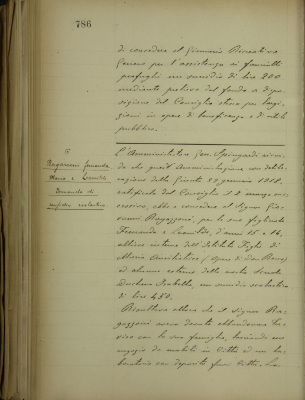 786
di concedere al Giannario Ricreativo
Genova per l'assistenza ai fanciulli
profughi un sussidio di lire 200
mediante prelievo dal fondo a dispo-
sizione del Consiglio stesso per largi-
zioni in opere di beneficenza e di utilità
pubblica.
5
Ragazzoni Fernanda
e Leonilde
domanda di
sussidio scolastico
L'Amministratore Gen. Spingardi ricor-
da che quest'Amministrazione con delibe-
razione della Giunta 29 gennaio 1918,
ratificata dal Consiglio il 2 marzo suc-
cessivo, ebbe a concedere al Signor Gio-
vanni Ragazzoni, per le sue figliuole
Fernanda e Leonilde, d'anni 15 e 16,
allieve interne dell'Istituto Figli di
Maria Ausiliatrice (Opera di Don Bosco)
ed alunne esterne della vostra Scuola
Duchessa Isabella, un sussidio scolastico
di lire 450.
Risultava allora che il signor Ra-
gazzoni aveva dovuto abbandonare
con la sua famiglia, lasciando un
negozio da mobili in città ed un la-
boratorio con deposito fuori città. La